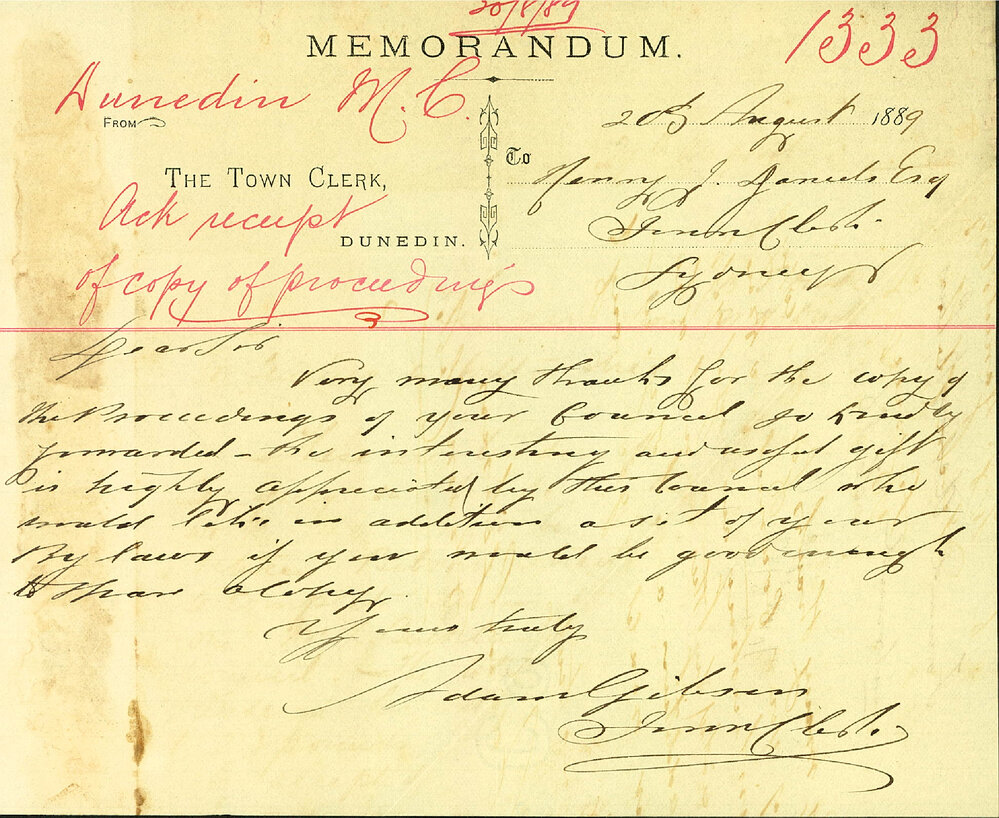 20/8/89
MEMORANDUM.
1333
Dunedin M.C.
FROM
20th August 1889
To
THE TOWN CLERK,
Henry J. Daniels Esq
Ack receipt
DUNEDIN.
Town Clerk
of copy of proceedings
Sydney
Dear Sir
Very many thanks for the copy of
the Proceedings of your Council so kindly
forwarded – the interesting and useful gift
is highly appreciated by this Council who
would like in addition a set of your
By laws if you would be good enough
to spare a copy.
Yours truly
Adam Gibson
Town Clerk.